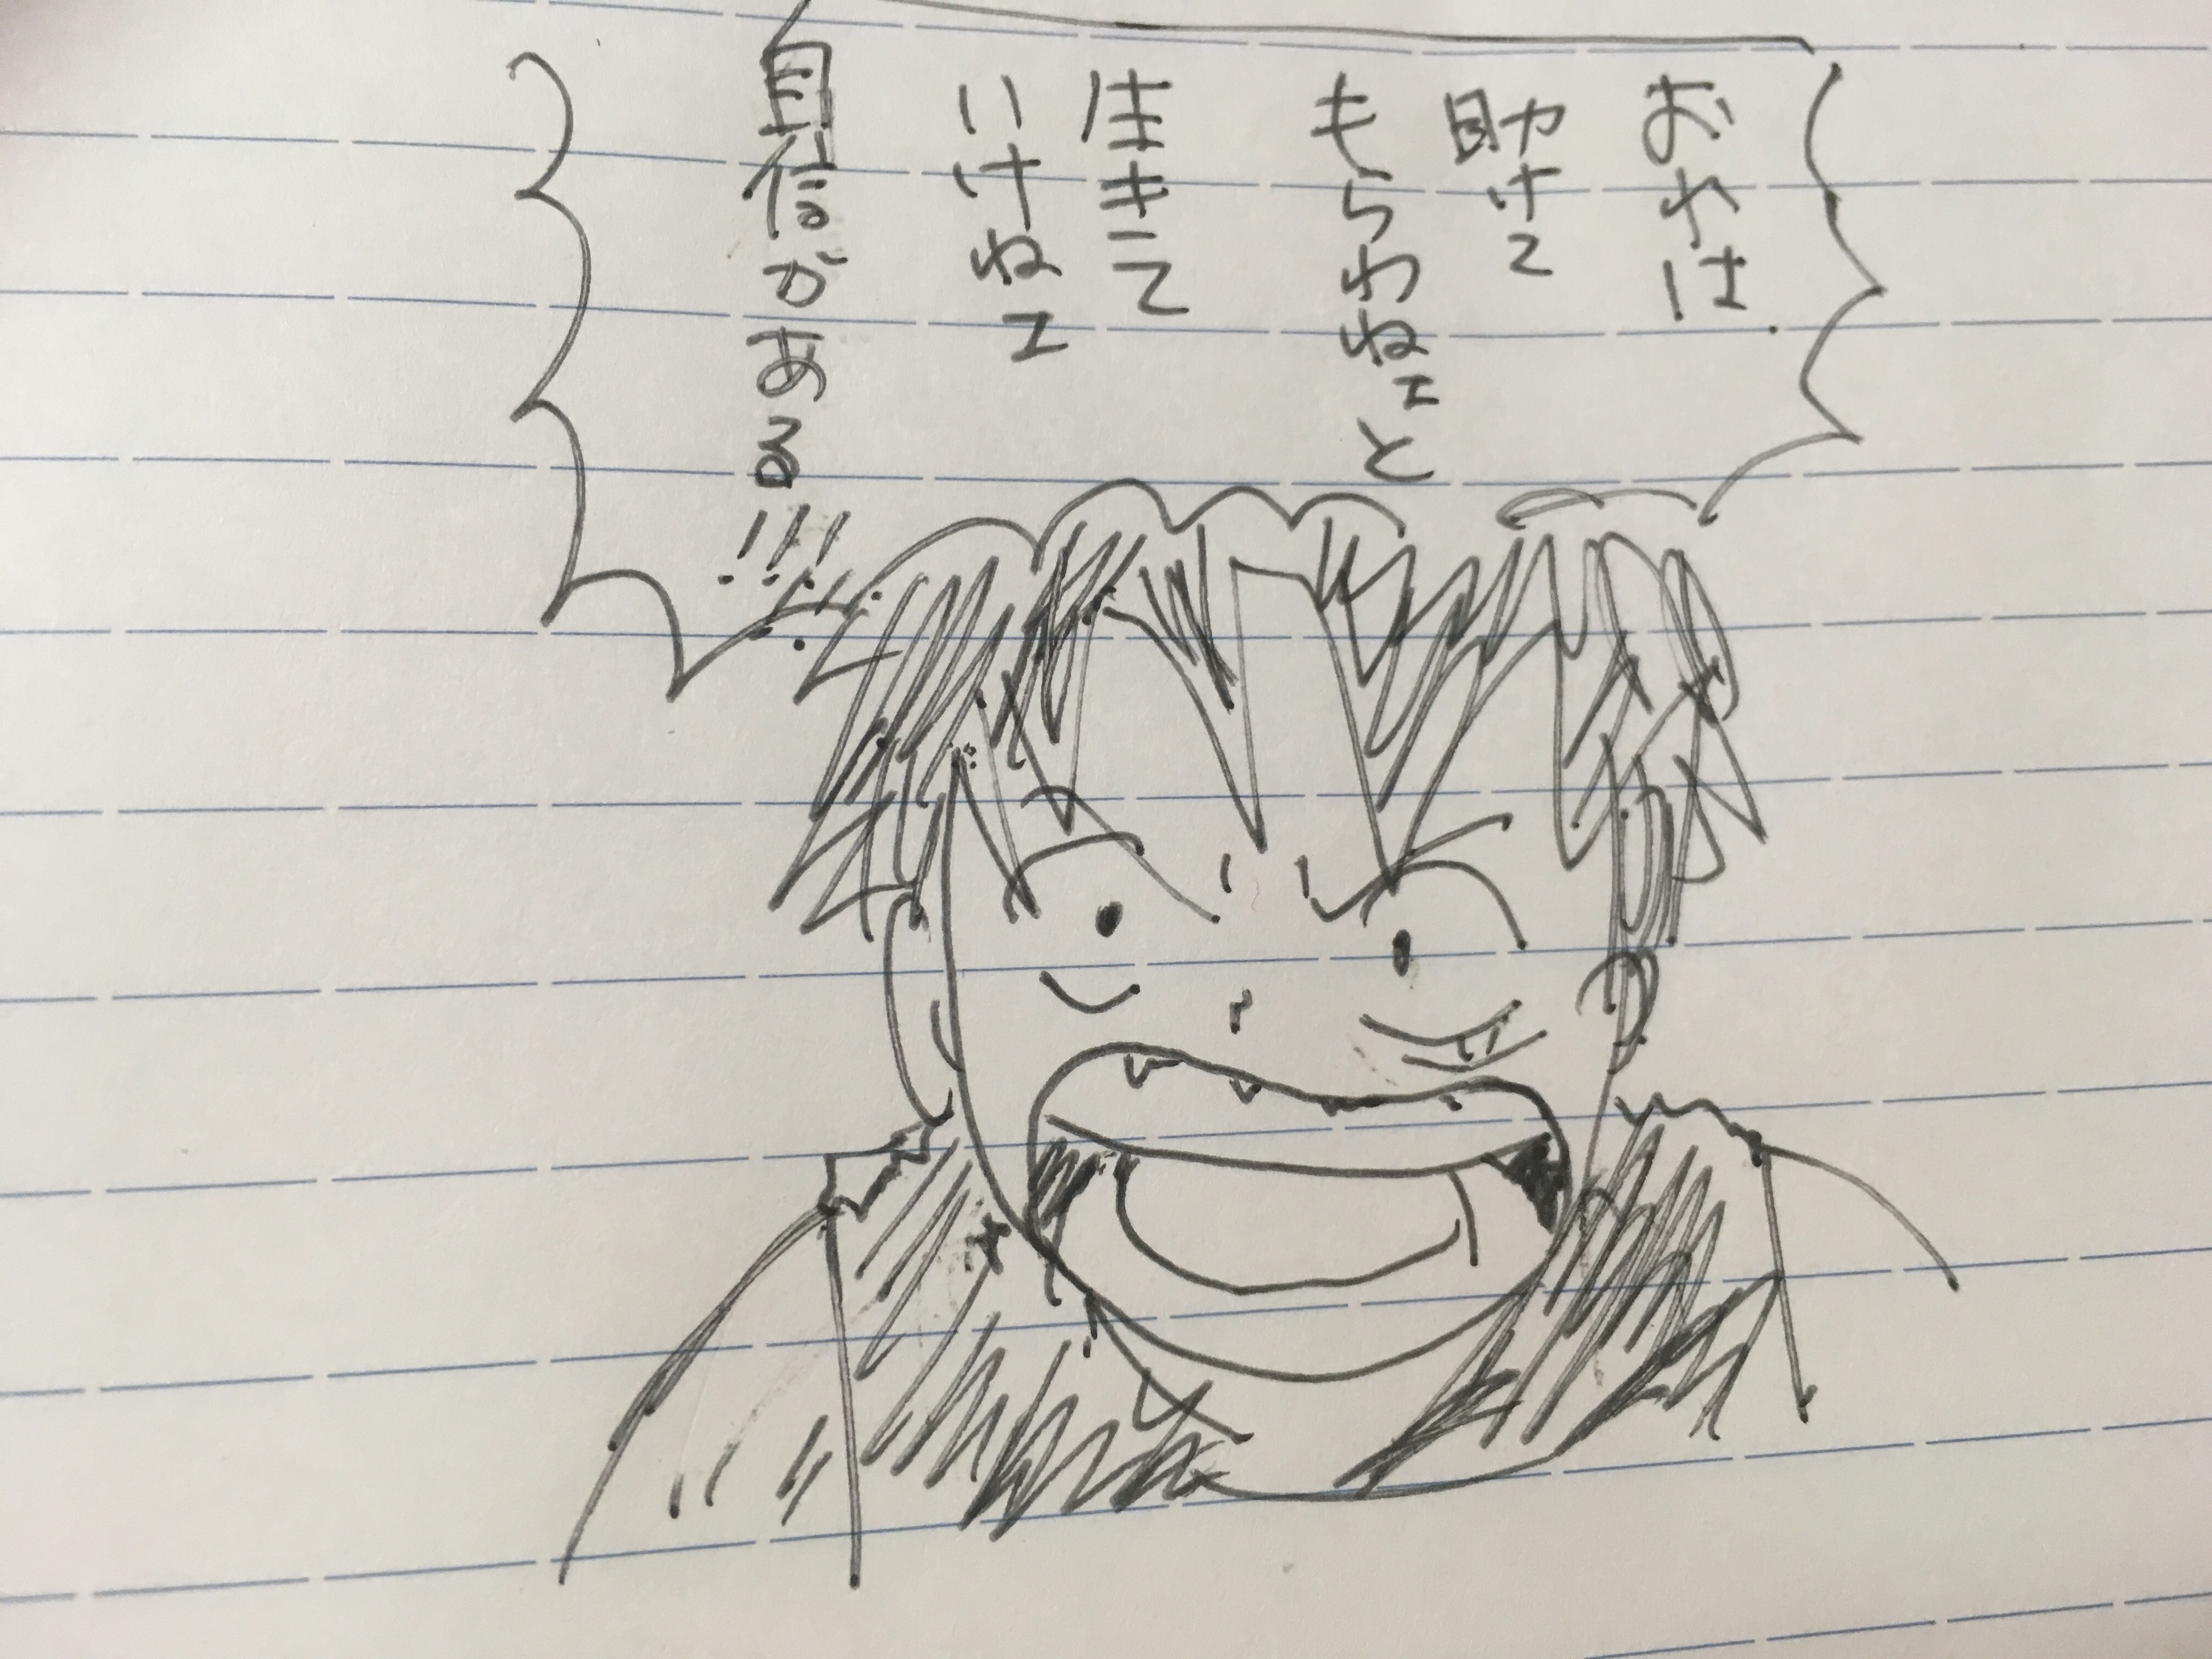 おれは
助けて
もらわねェと
生きて
いけねェ
自信がある!!!